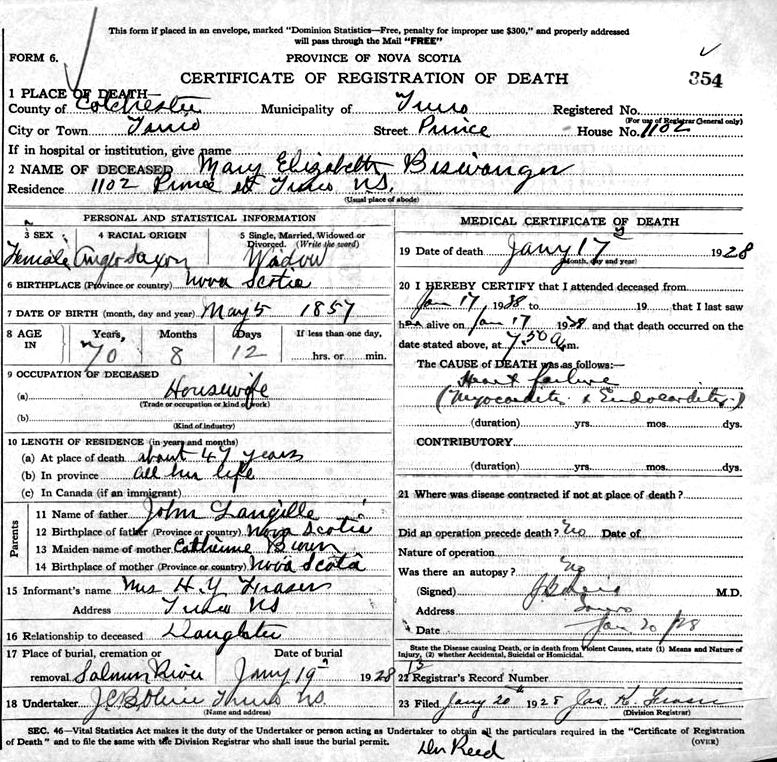 This form if placed in an envelope, marked "Dominion Statistics—Free, penalty for improper use $300," and properly addressed
will pass through the Mail "FREE"
FORM 6.
PROVINCE OF NOVA SCOTIA
CERTIFICATE OF REGISTRATION OF DEATH
354
1 PLACE OF DEATH—
County of Colchester Municipality of Truro Registered No.
(For use of Registrar General only)
City or Town Truro Street Prince House No. 1102
If in hospital or institution, give name
2 NAME OF DECEASED Mary Elizabeth Biswanger
Residence 1102 Prince st Truro NS.
(Usual place of abode)
PERSONAL AND STATISTICAL INFORMATION
3 SEX 4 RACIAL ORIGIN 5 Single, Married, Widowed or Divorced. (Write the word)
Female Anglo Saxon Widow
6 BIRTHPLACE (Province or country) Nova Scotia
7 DATE OF BIRTH (month, day and year) May 5 1857
8 AGE IN Years, Months Days If less than one day,
70 8 12 hrs. or min.
9 OCCUPATION OF DECEASED
(a) Housewife
(Trade or occupation or kind of work)
(b)
(Kind of industry)
10 LENGTH OF RESIDENCE (in years and months)
(a) At place of death about 47 years
(b) In province all her life
(c) In Canada (if an immigrant)
Parents
11 Name of father John Langille
12 Birthplace of father (Province or country) Nova Scotia
13 Maiden name of mother Catherine
14 Birthplace of mother (Province or country) Nova Scotia
15 Informant's name Mrs H. Y. Fraser
Address Truro NS
16 Relationship to deceased Daughter
17 Place of burial, cremation or Date of burial
removal Salmon River Jany 19th 1928
18 Undertaker Truro NS.
(Name and address)
MEDICAL CERTIFICATE OF DEATH
19 Date of death Jany 17 1928
(Month, day and year)
20 I HEREBY CERTIFY that I attended deceased from
Jan 17 1928 to 19 that I last saw
her alive on Jan 17 1928 and that death occurred on
date stated above, at 7.50 a.m.
The CAUSE of DEATH was as follows:—
Heart failure
(Myocarditis & Endocarditis)
(duration) yrs. mos. dys.
CONTRIBUTORY
(duration) yrs. mos. dys.
21 Where was disease contracted if not at place of death?
Did an operation precede death? No Date of
Nature of operation
Was there an autopsy? No
(Signed) M.D.
Address Truro
Date Jan 20/28
State the Disease causing Death, or in death from Violent Causes, state (1) Means and Nature of
Injury, (2) whether Accidental, Suicidal or Homicidal.
22 Registrar's Record Number 13
23 Filed Jany 20th 1928 Jas. K. Fraser
(Division Registrar)
SEC. 46—Vital Statistics Act makes it the duty of the Undertaker or person acting as Undertaker to obtain all the particulars required in the "Certificate of Registration
of Death" and to file the same with the Division Registrar who shall issue the burial permit. (OVER)
Dr Reid